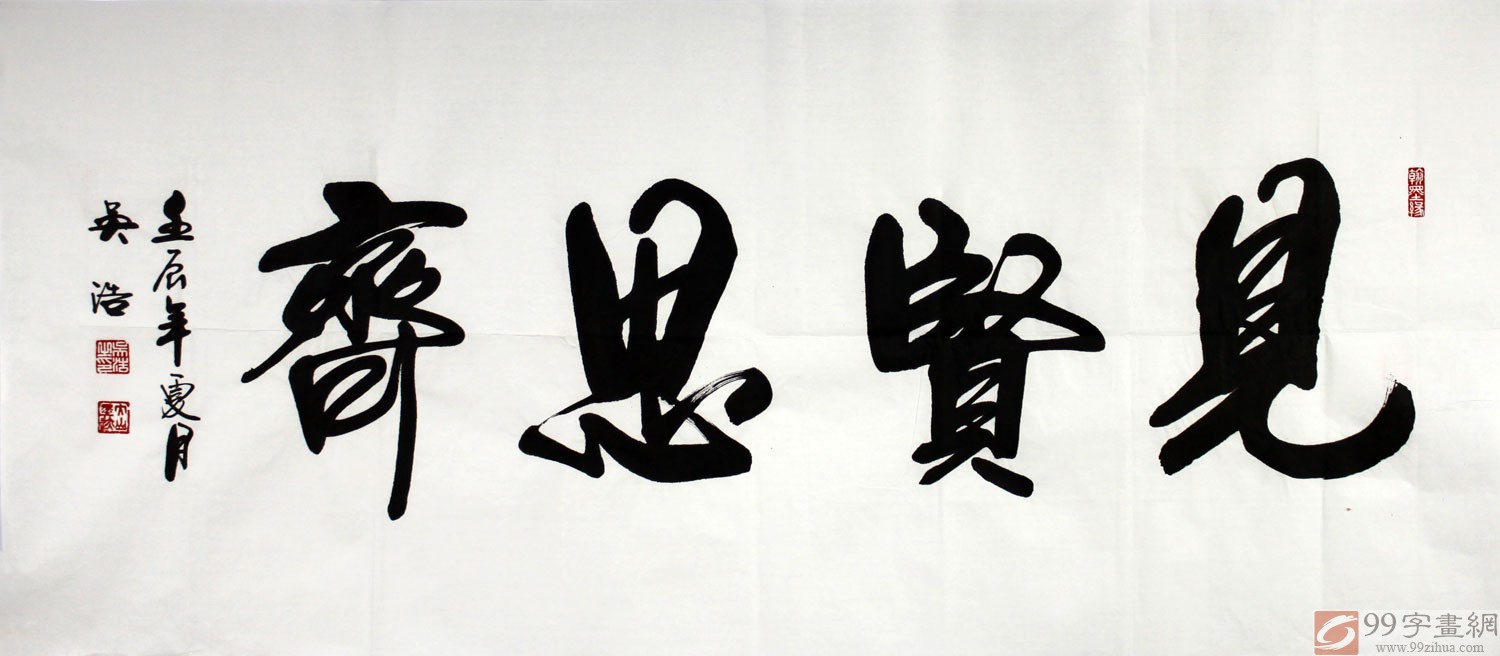 見賢思齊
壬辰年夏月
吳浩
99字畫網
www.99zihua.com